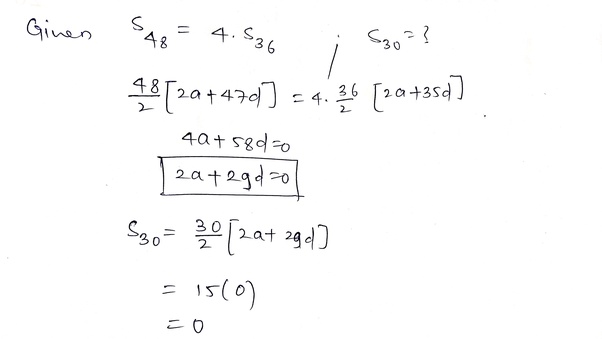 Given S₄₈ = 4. S₃₆ ; S₃₀ = ?
48/2 [2a+47d] = 4. 36/2 [2a+35d]
4a+58d=0
2a+29d=0
S₃₀ = 30/2 [2a+29d]
= 15(0)
= 0